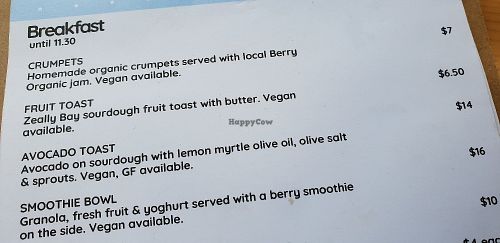 Breakfast
until 11.30
$7
CRUMPETS
Homemade organic crumpets served with local Berry
Organic jam. Vegan available.
$6.50
FRUIT TOAST
Zeally Bay sourdough fruit toast with butter. Vegan
available.
$14
HappyCow
AVOCADO TOAST
Avocado on sourdough with lemon myrtle olive oil, olive salt
& sprouts. Vegan, GF available.
$16
SMOOTHIE BOWL
Granola, fresh fruit & yoghurt served with a berry smoothie
on the side. Vegan available.
$10